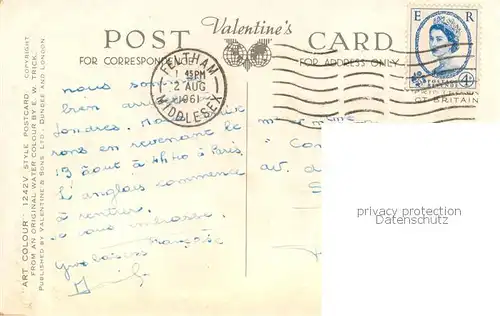 POST Valentine's CARD
FOR CORRESPONDENCE FOR ADDRESS ONLY
FELTHAM
1 45PM
2 AUG
1961
MIDDLESEX
E R
POSTAGE REVENUE
4D
OF BRITAIN
nous som
bien arri
Londres. 
rons en revenant le
19 août à 4h40 à Paris
L'anglais commence
à rentrer.
je vous embrasse.
Françoise
"Con
av. d
S
privacy protection
Datenschutz
"ART COLOUR" 1242V STYLE POSTCARD. COPYRIGHT.
FROM AN ORIGINAL WATER COLOUR BY E. W. TRICK.
PUBLISHED BY VALENTINE & SONS LTD., DUNDEE AND LONDON